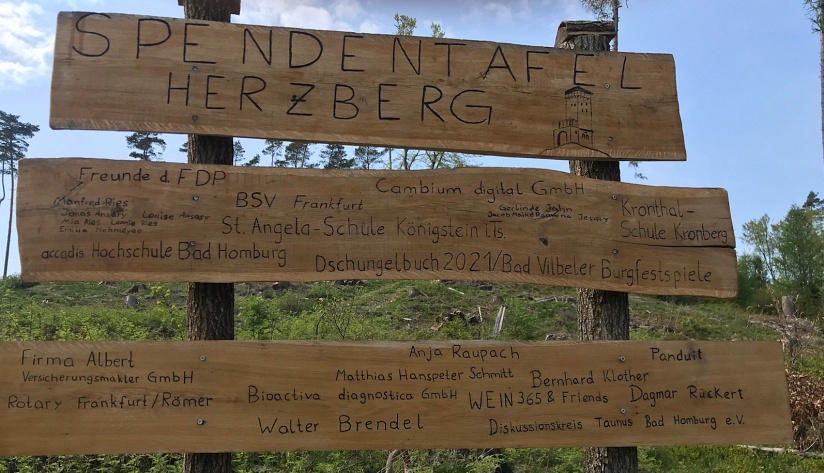 SPENDENTAFEL
HERZBERG
Freunde d FDP
Cambium digital GmbH
Manfred Ries
BSV Frankfurt
Gerlinde Jahn
Kronthal-
Jonas Ansary Louise Ansary
Jacob Maike Jessy
Mia Ries Lennie Ries
St. Angela-Schule Königstein i.Ts.
Schule Kronberg
Emilia
accadis Hochschule Bad Homburg
Dschungelbuch 2021/Bad Vilbeler Burgfestspiele
Firma Albert
Anja Raupach
Panduit
Versicherungsmakler GmbH
Matthias Hanspeter Schmitt
Bernhard Klother
Rotary Frankfurt/Römer
Bioactiva diagnostica GmbH
WEIN 365 & Friends
Dagmar Rückert
Walter Brendel
Diskussionskreis Taunus Bad Homburg e.V.